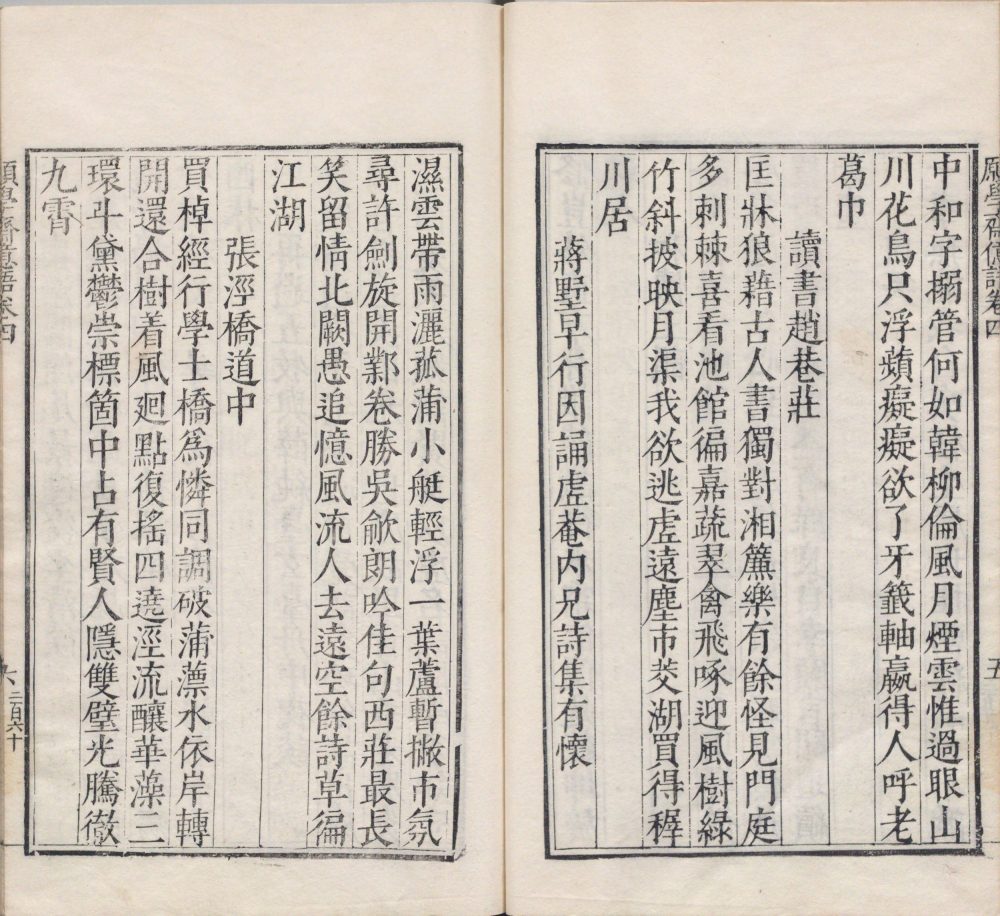 中和字搦管何如韓柳倫風月煙雲惟過眼山
川花鳥只浮蘋癡癡欲了牙籤軸贏得人呼老
葛巾
讀書趙巷莊
匡牀狼藉古人書獨對湘簾樂有餘怪見門庭
多刺棘喜看池館徧嘉蔬翠禽飛啄迎風樹綠
竹斜披映月渠我欲逃虛遠塵市茭湖買得稺
川居
蔣墅早行因誦虛菴内兄詩集有懷
五
濕雲帶雨灑菰蒲小艇輕浮一葉蘆暫撇市氛
尋許劍旋開鄴卷勝吳歈朗吟佳句西莊最長
笑留情北闕愚追憶風流人去遠空餘詩草徧
江湖
張涇橋道中
買棹經行學士橋爲憐同調破蒲薸水依岸轉
開還合樹着風廻點復搖四遶涇流釀華藻三
環斗黛鬱崇標箇中占有賢人隱雙璧光騰徹
九霄
卷四
六
三百六十